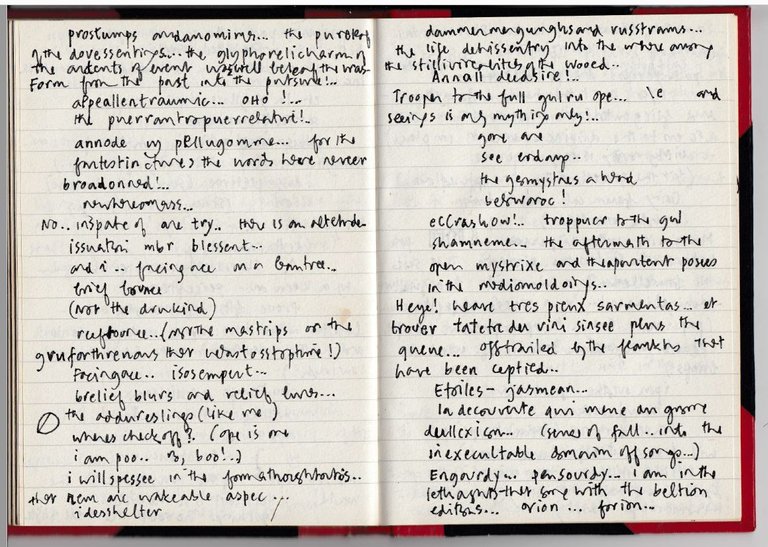 prostumps andanomims... the puroley
of the dovessentings... the glyphorelicharm of
the ardents of event waswell beloaf the was-
form from the past into the putsure!..
appeallentraumic... OHO !...
the puerrantropuerrelative!..
annode my pellugomme... for the
fantestinctures the words here never
broadonned!...
newhereomass...
No.. inspate of are try.. there is an
issuation mbr blessent...
and i.. facing ace on a
brief bounce
(not the drunkind)
reefbounce..(nor the mastrips or the
gruforthrenous that wastosstophine!)
Facingace.. isosempert...
brelief blurs and relief lures...
the addureslings (like me)
wheres check off? (ope is one
i am poo.. oz, boo!..)
i will spessee in the
that item are wakeable aspec...
idesshelter
dammermengunghsand russtrams...
the life detrissentry into the where among
the of the wooed..
Annall deedsire!..
Trooper to the full gulru ope... \e and
seeings is only mything only!..
gone are
see endamp..
the gemystres ahead
berwaroc!
eccrashow!.. troppuer to the gul
shamneme... the aftermath to the
open mystrixe and theapertent posees
in the madiomoldoirys..
Heye! heare tres pieux sarmentas... et
trover tatetre du vini sinsee pens the
queue... offtrailed by the flanks that
have been cepticed...
Etoiles - jasmean...
la decouverte qui mene an gnome
dullexicon... (sense of fall.. into the
inexecultable domaim offsongs...)
Engourdy... pensourdy... i am in the
lethagnts that song with the beltion
editions... orion ... forion...